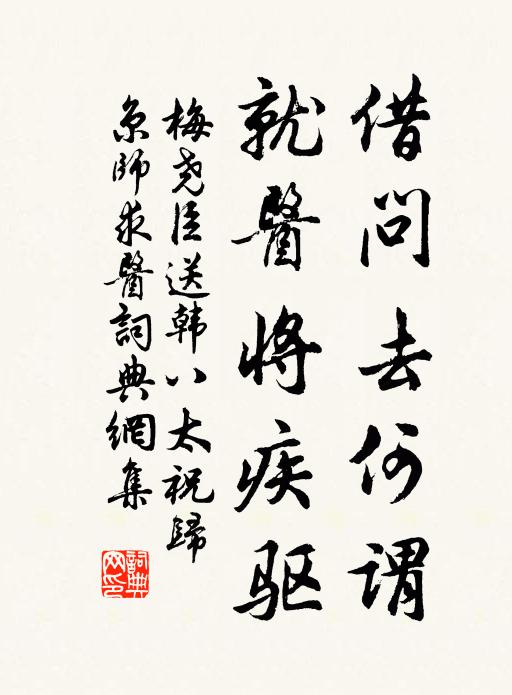 借问去何谓
就醫将疾驱
梅尧臣送韩八太祝歸
京師求醫詞典網集
詞典网印